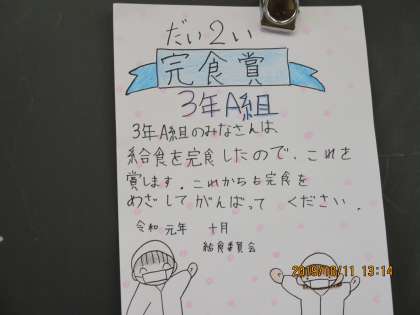 だい2い
完食賞
3年A組
3年A組のみなさんは
給食を完食したので、これを
賞します。これからも完食を
めざしてがんばって ください。
令和 元年 十月
給食委員会
13:14